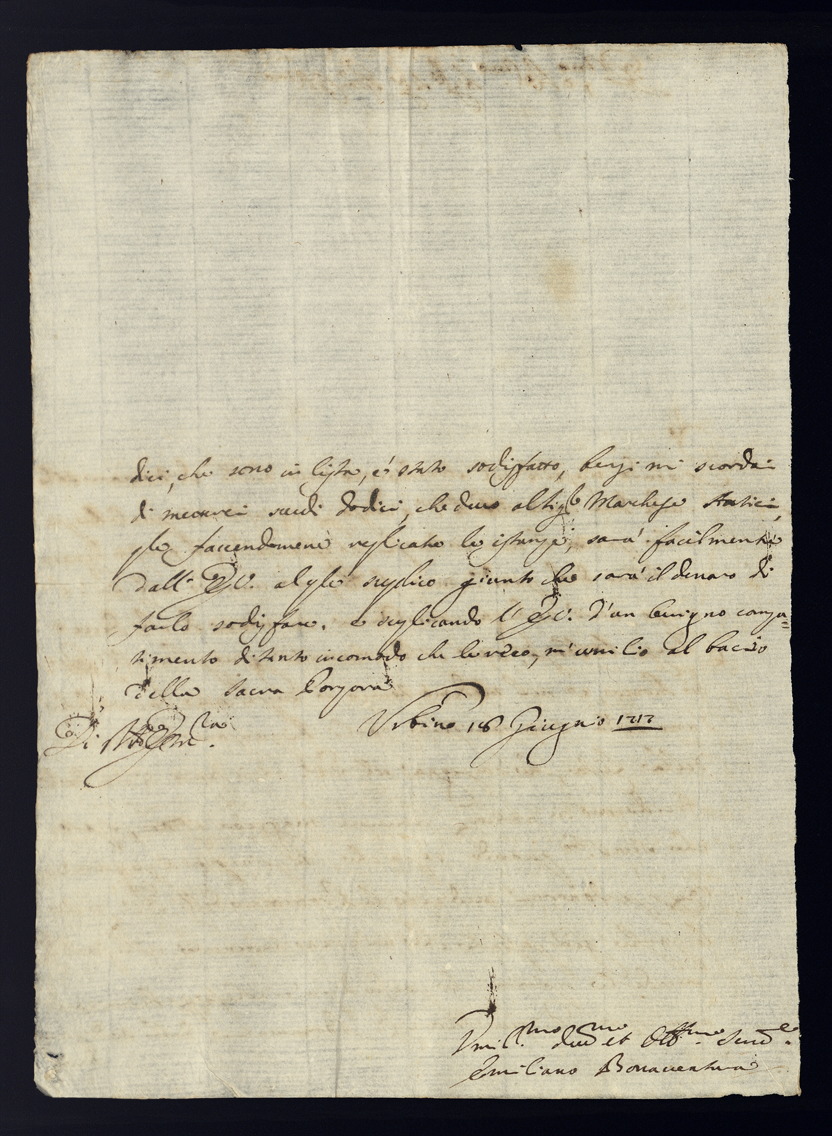 dici, che sono in lista, é stato sodisfatto, bensi mi scordai
di metterci scudi dodici, che devo al Sig.e Marchese Antici,
qle facendomene replicate le istanze, sará facilmente
dall' E.V. al qle suplico giunto che sará il denaro di
farlo sodisfare. e suplicando l' E.V. d'un benigno compa=
timento di tanto incomodo che le reco, m'umilio al bacio
della Sacra Porpora
Di V.
Urbino 18 Giugno 1717
Umil.mo dev.mo et Obb.mo Serv.e
Emiliano Bonaventura